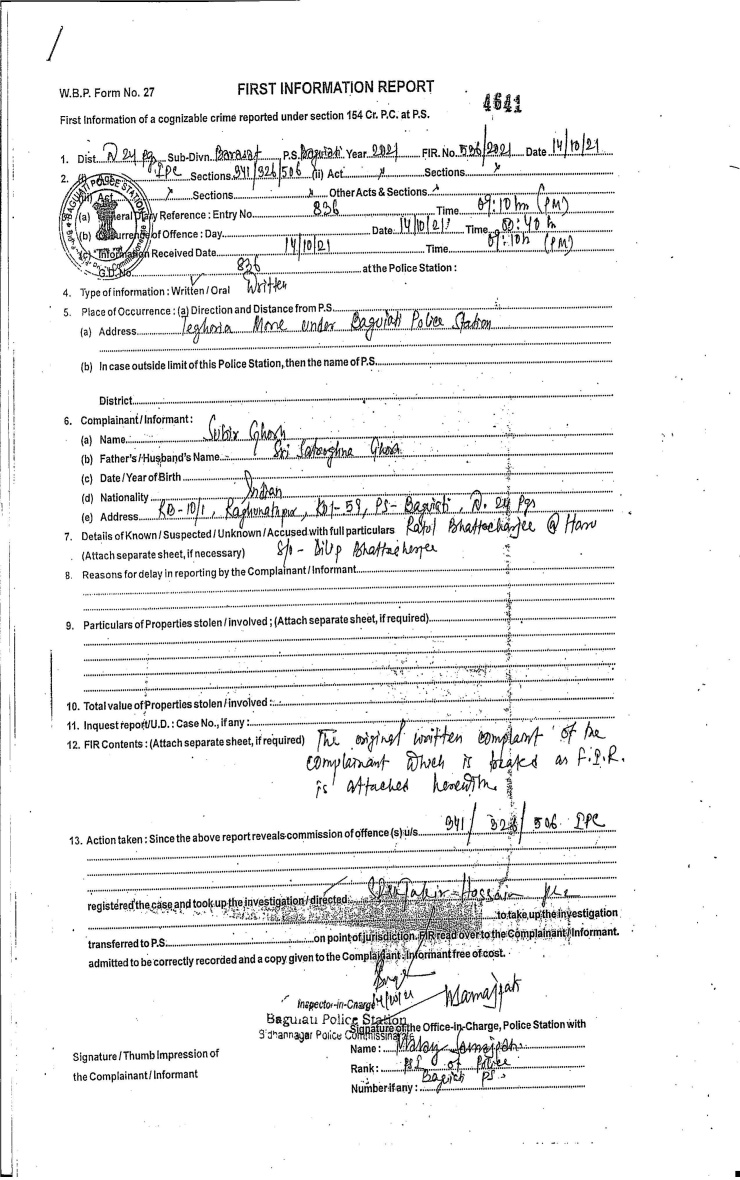 W.B.P. Form No. 27 FIRST INFORMATION REPORT 4641
First Information of a cognizable crime reported under section 154 Cr. P.C. at P.S.
1. Dist. N 24 Pgs Sub-Divn. Barasat P.S. Baguiati Year 2021 FIR. No. 536/2021 Date 14/10/21
2. (i) Act IPC Sections 341/326/506 (ii) Act x Sections x
(iii) Act x Sections x Other Acts & Sections x
(a) General Diary Reference : Entry No. 836 Time 09:10 hrs (PM)
(b) Occurrence of Offence : Day Date 14/10/21 Time 00:40 h
(c) Information Received Date 14/10/21 Time 09:10h (PM)
G.D. No. 836 at the Police Station :
BAGUIATI POLICE STATION
4. Type of information : Written / Oral Written
5. Place of Occurrence : (a) Direction and Distance from P.S.
(a) Address Teghoria More under Baguiati Police Station
(b) In case outside limit of this Police Station, then the name of P.S.
District
6. Complainant / Informant :
(a) Name Subir Ghosh
(b) Father's / Husband's Name Sri
(c) Date / Year of Birth
(d) Nationality Indian
(e) Address KB-10/1, Raghunathpur, Kol-59, PS- Baguiati, N. 24 Pgs
7. Details of Known / Suspected / Unknown / Accused with full particulars Ratul Bhattacharjee @
(Attach separate sheet, if necessary) S/o - Dilip Bhattacherjee
8. Reasons for delay in reporting by the Complainant / Informant
9. Particulars of Properties stolen / involved ; (Attach separate sheet, if required)
10. Total value of Properties stolen / involved :
11. Inquest report/U.D. : Case No., if any :
12. FIR Contents : (Attach separate sheet, if required) The original written complaint of the
complainant which is treated as F.I.R.
is attached herewith.
13. Action taken : Since the above report reveals commission of offence (s) u/s 341/ 326/ 506 IPC
registered the case and took up the investigation / directed Hossain
to take up the investigation
transferred to P.S. on point of jurisdiction. FIR read over to the Complainant / Informant.
admitted to be correctly recorded and a copy given to the Complainant : Informant free of cost.
14/10/21
Inspector-in-Charge
Baguiati Police Station
Bidhannagar Police Commissionerate
Signature of the Office-In-Charge, Police Station with
Signature / Thumb Impression of
the Complainant / Informant
Name :
Rank : of Police
Number if any : Baguiati PS.